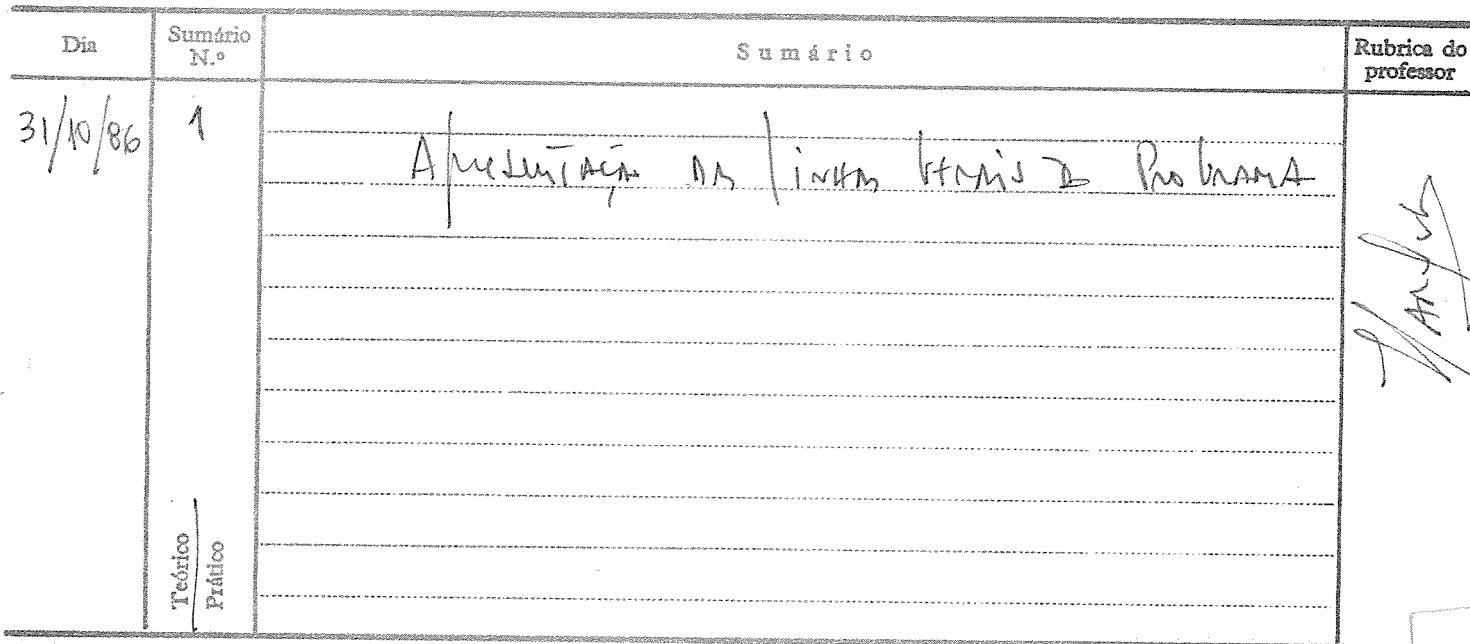 Dia
Sumário N.º
Sumário
Rubrica do professor
31/10/86
1
Apresentação das linhas gerais do Programa
Teórico
Prático